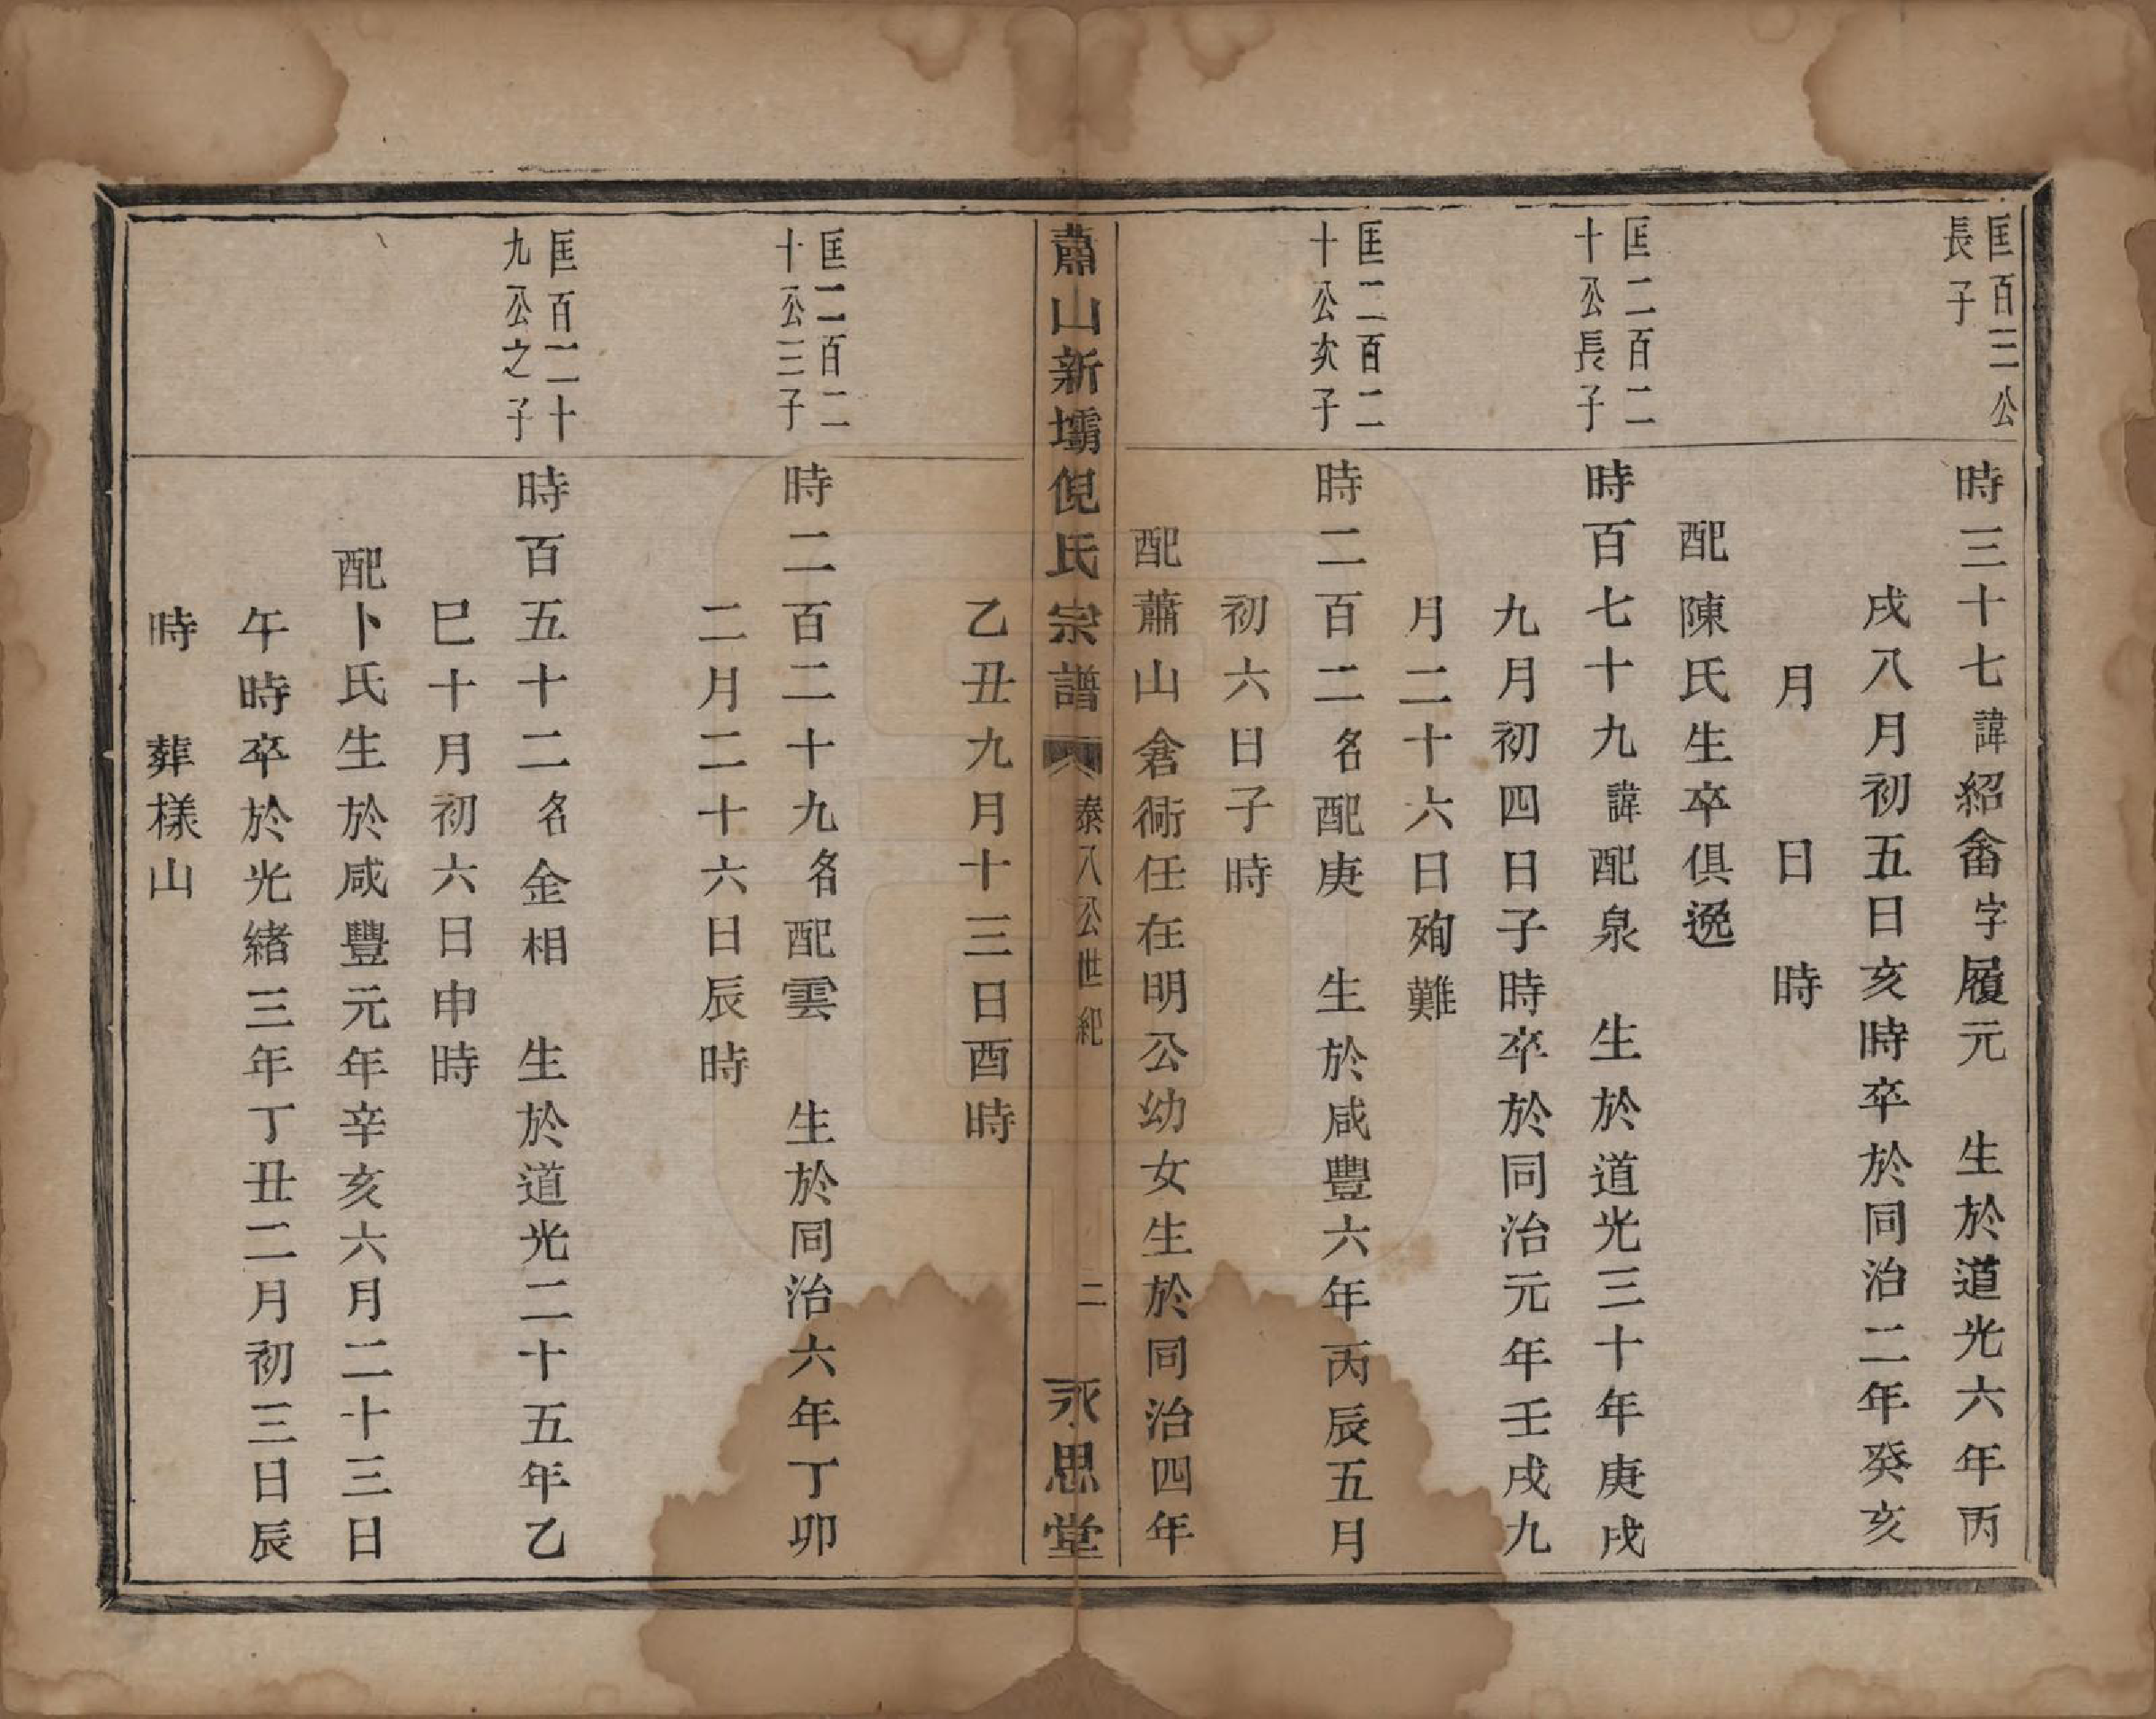 匡百三公
長子
時三十七諱紹畬字履元　生於道光六年丙
戌八月初五日亥時卒於同治二年癸亥
月　　日　時
配陳氏生卒俱逸
匡二百二
十公長子
時百七十九諱配泉　生於道光三十年庚戌
九月初四日子時卒於同治元年壬戌九
月二十六日殉難
匡二百二
十公次子
時二百二名配庚　生於咸豐六年丙辰五月
初六日子時
配蕭山倉衖任在明公幼女生於同治四年
蕭山新壩倪氏宗譜　泰八公世紀　二　永思堂
乙丑九月十三日酉時
匡二百二
十公三子
時二百二十九名配雲　生於同治六年丁卯
二月二十六日辰時
匡百二十
九公之子
時百五十二名金相　生於道光二十五年乙
巳十月初六日申時
配卜氏生於咸豐元年辛亥六月二十三日
午時卒於光緒三年丁丑二月初三日辰
時　葬樣山